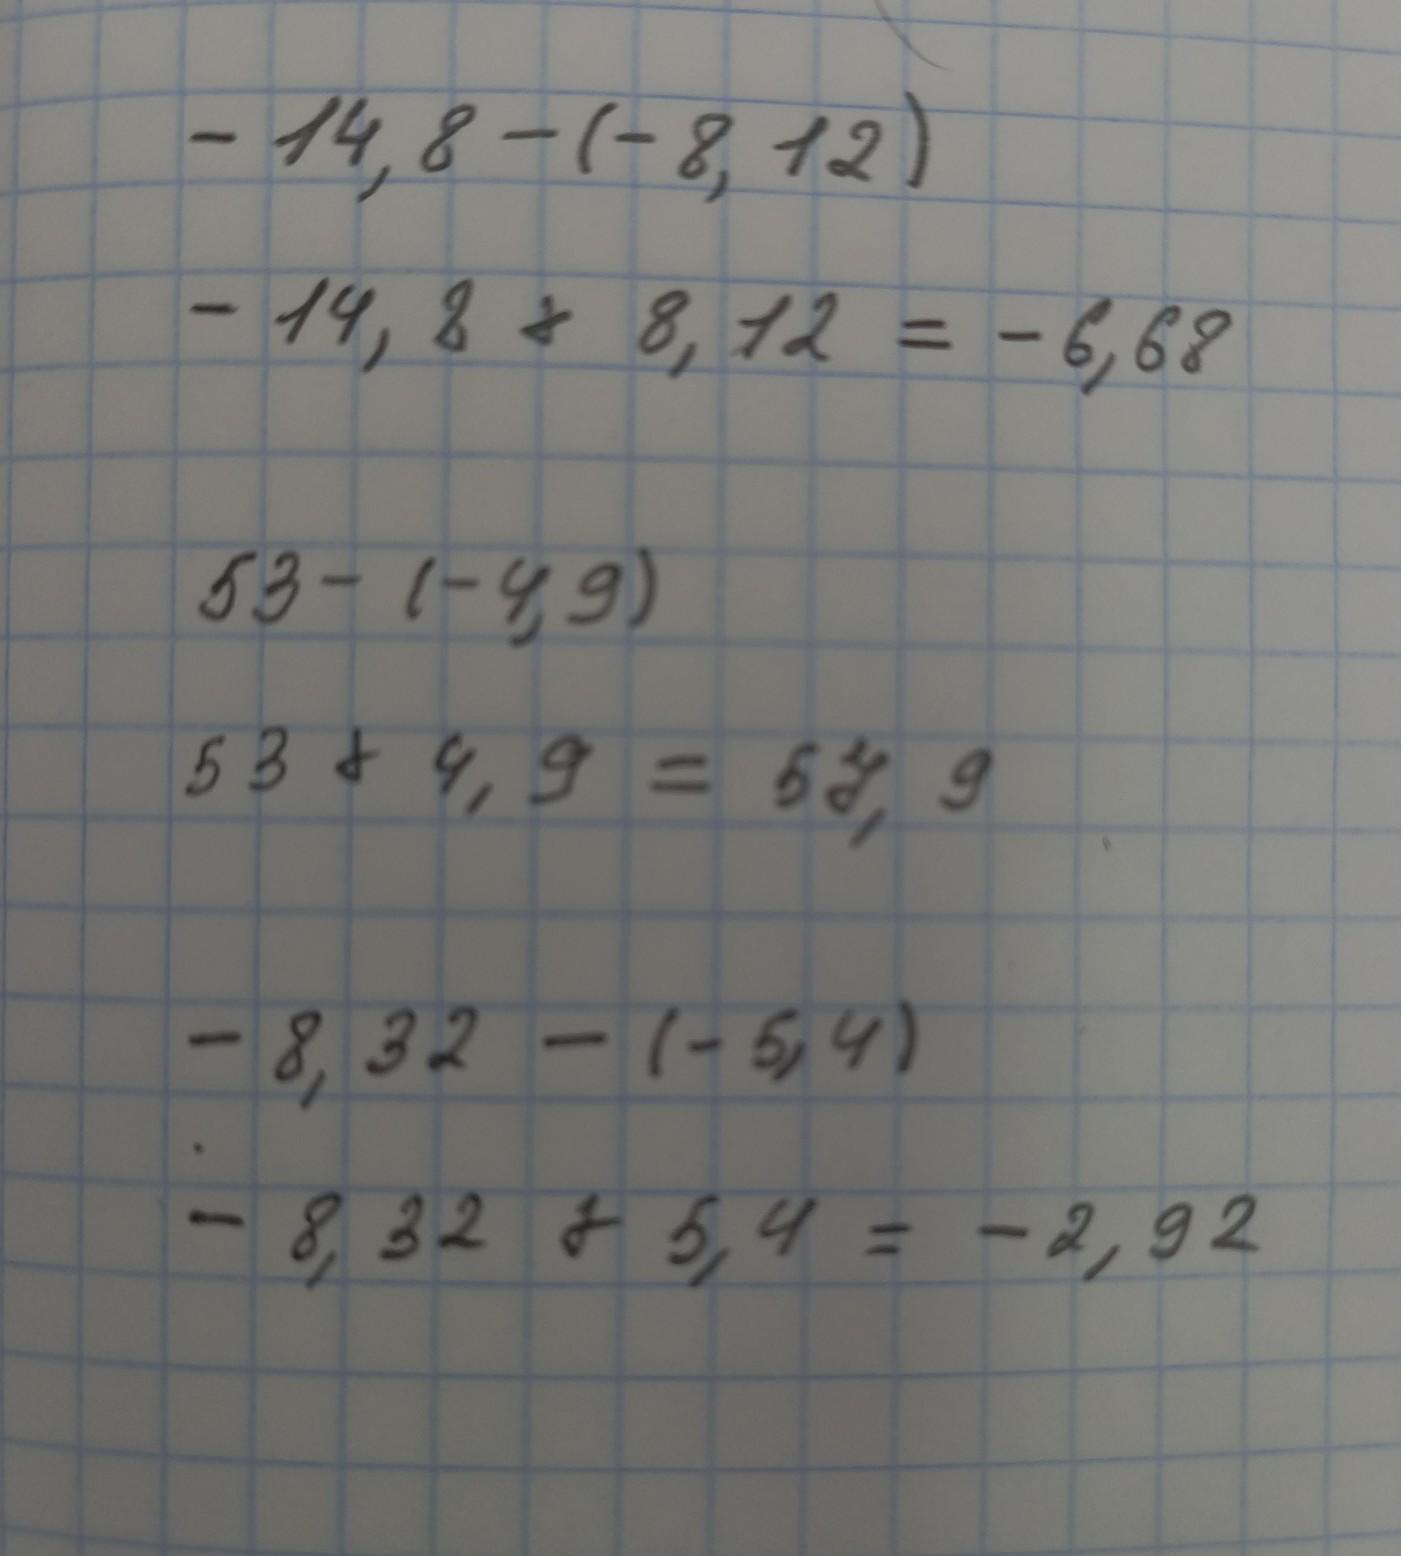 - 14,8 - (- 8,12)
- 14,8 + 8,12 = - 6,68
53 - (- 4,9)
53 + 4,9 = 57,9
- 8,32 - (- 5,4)
- 8,32 + 5,4 = - 2,92